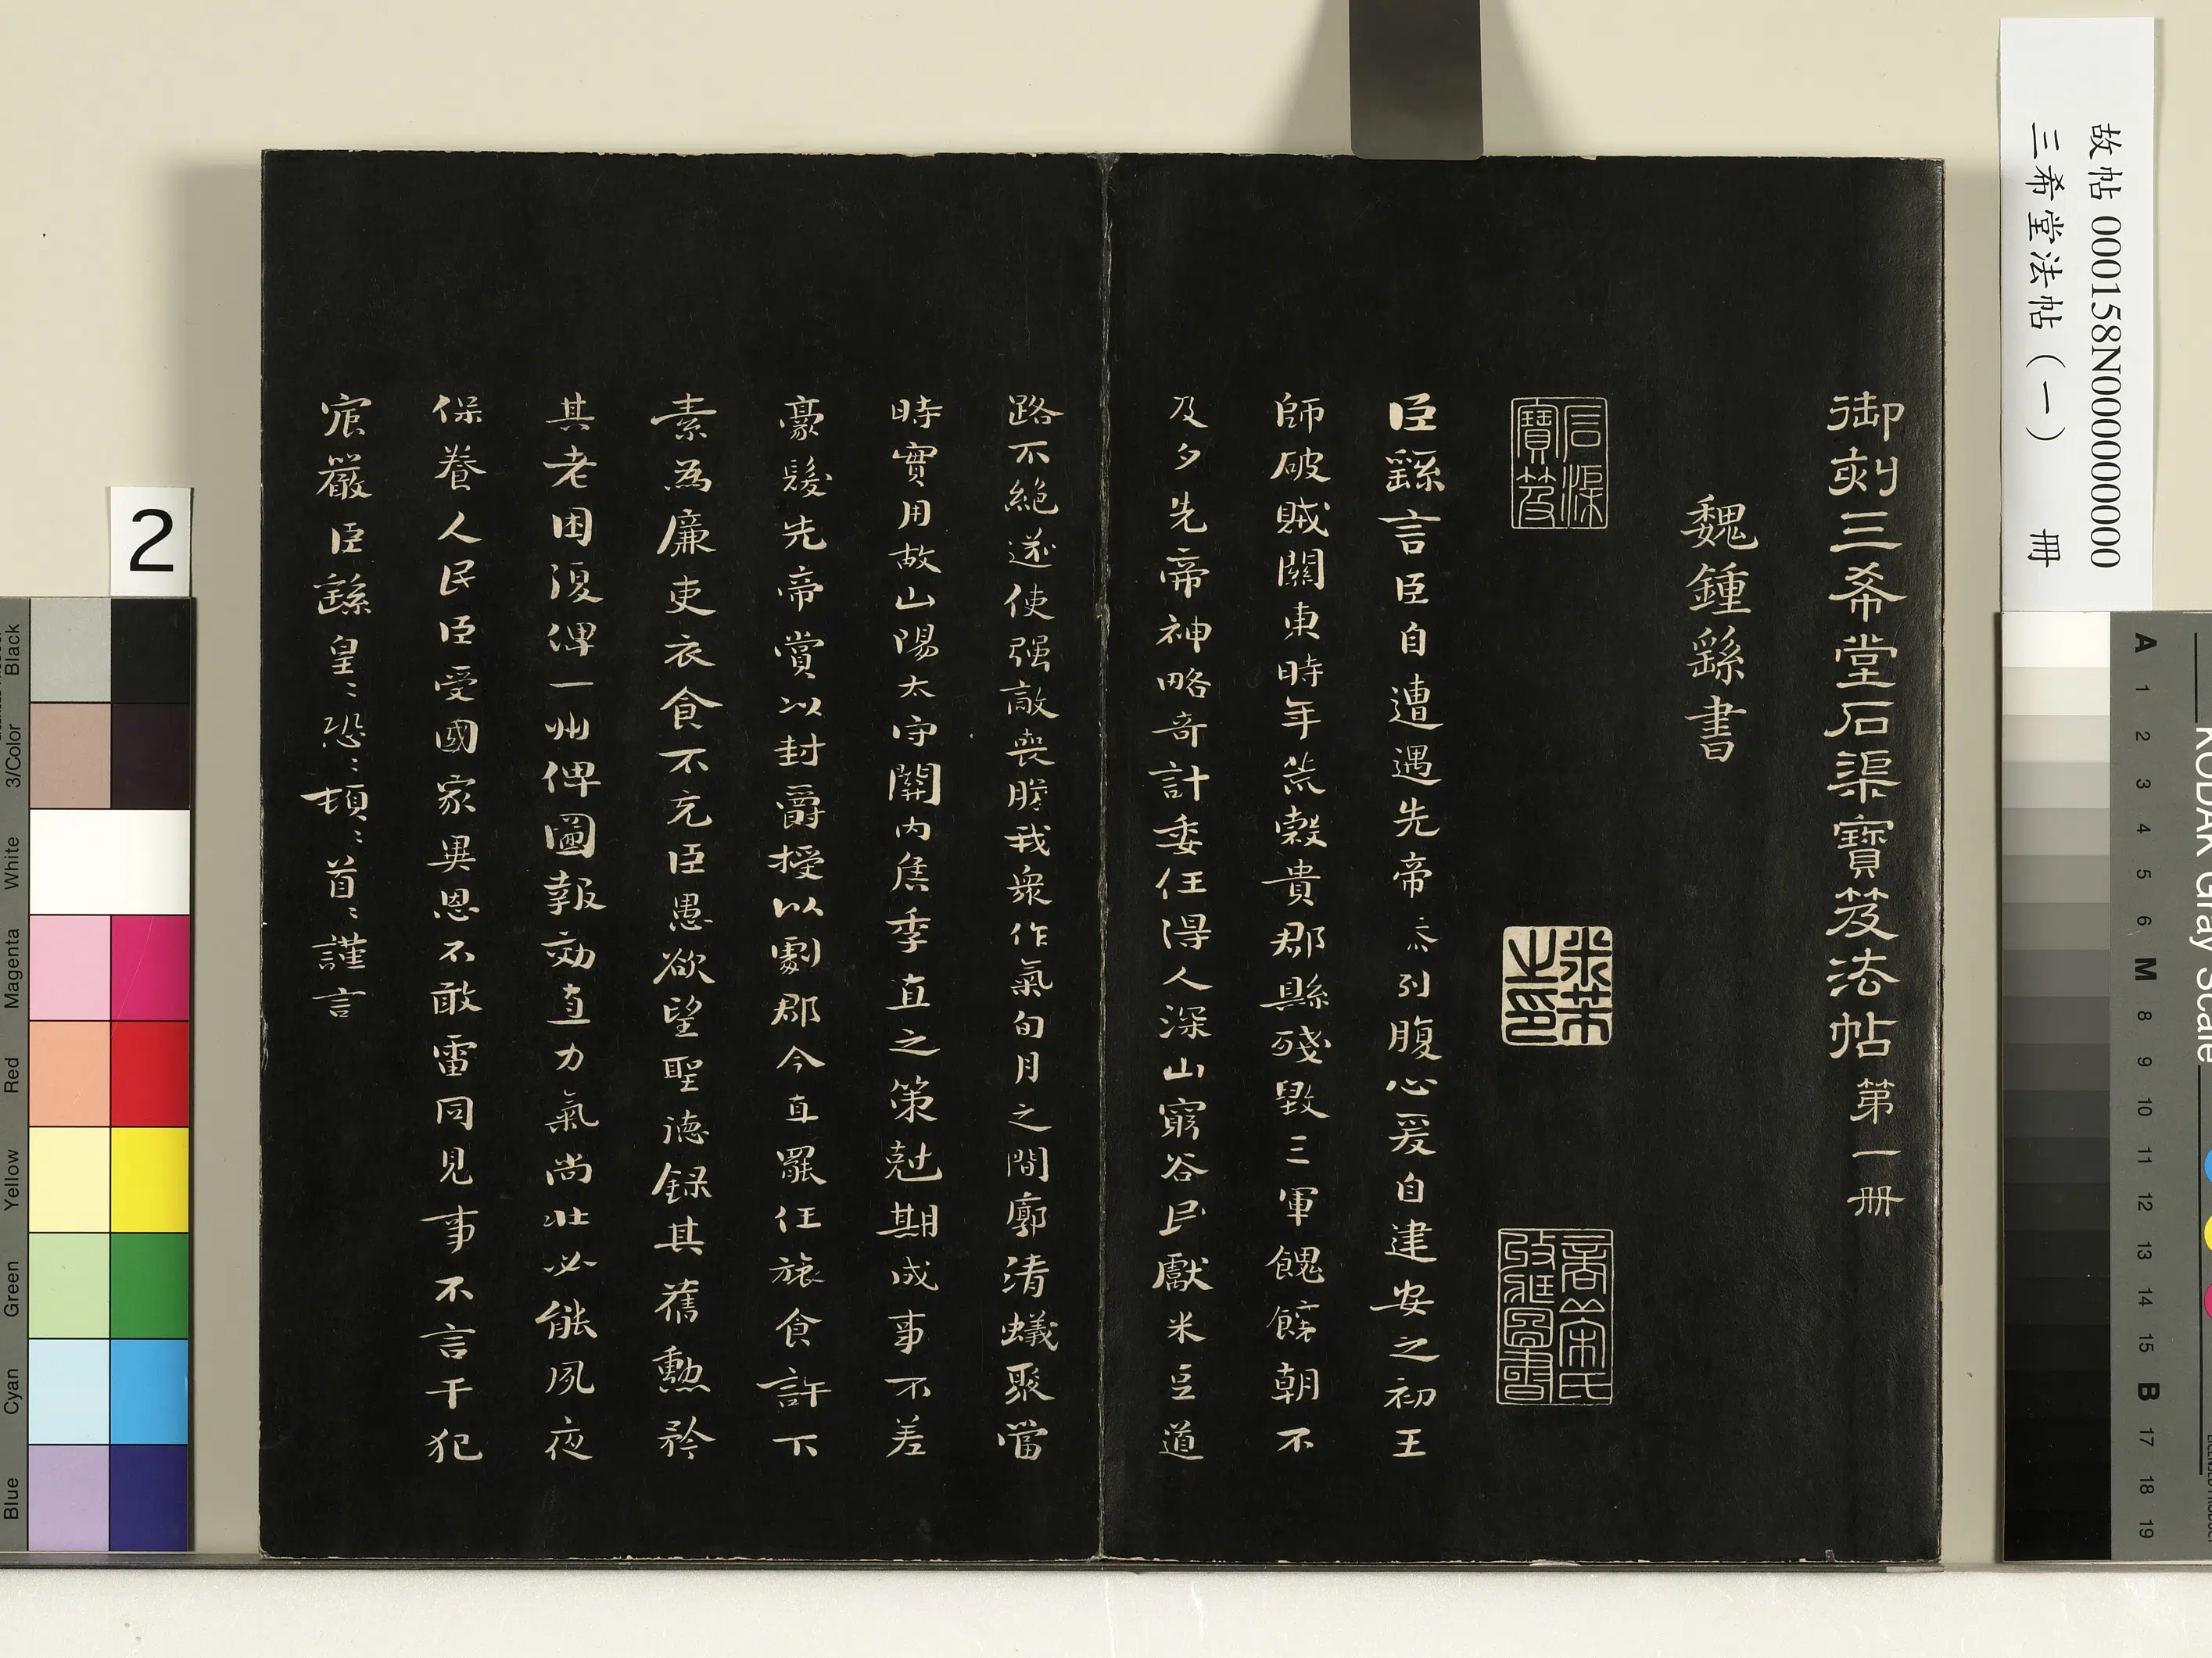 御刻三希堂石渠寶笈法帖第一册
魏鍾繇書
石渠寶笈
米芾之印
臣繇言臣自遭遇先帝忝列腹心爰自建安之初王
師破賊關東時年荒穀貴郡縣殘毀三軍餽饟朝不
及夕先帝神略奇計委任得人深山窮谷民獻米豆道
路不絕遂使強敵喪膽我衆作氣旬月之間廓清蟻聚當
時實用故山陽太守關內侯季直之策尅期成事不差
豪髮先帝賞以封爵授以劇郡今直罷任旅食許下
素為廉吏衣食不充臣愚欲望聖德錄其舊勳矜
其老困復俾一州俾圖報効直力氣尚壯必能夙夜
保養人民臣受國家異恩不敢雷同見事不言干犯
宸嚴臣繇皇〻恐〻頓〻首〻謹言
故帖000158N000000000
三希堂法帖（一） 冊
2
Black
3/Color
White
Magenta
Red
Yellow
Green
Cyan
Blue
KODAK Gray Scale
A 1 2 3 4 5 6 M 8 9 10 11 12 13 14 15 B 17 18 19